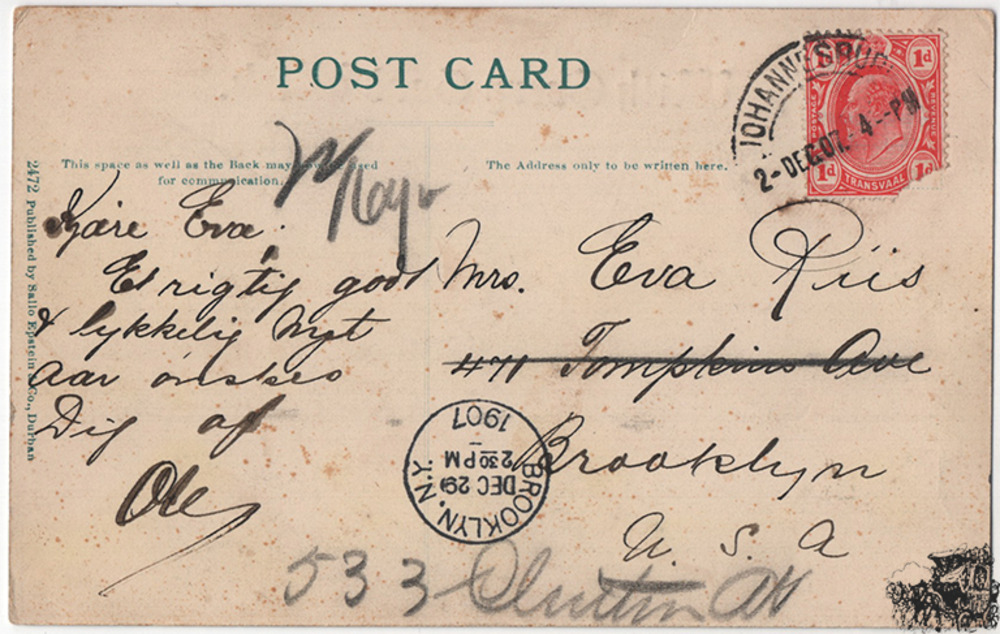 POST CARD
This space as well as the Back may now be used
for communication.
The Address only to be written here.
JOHANNESBURG
2-DEC.07. 4--PM
1d 1d
POSTAGE REVENUE
1d 1d
TRANSVAAL
2472 Published by Sallo Epstein & Co., Durban
Kjære Eva!
Et rigtig godt
& lykkelig Nyt
Aar ønskes
Dig af
Ole
Mrs. Eva Riis
471 Tompkins Ave
Brooklyn
U. S. A
BROOKLYN, N.Y.
DEC 29
2 30 PM
1907
533 Clinton